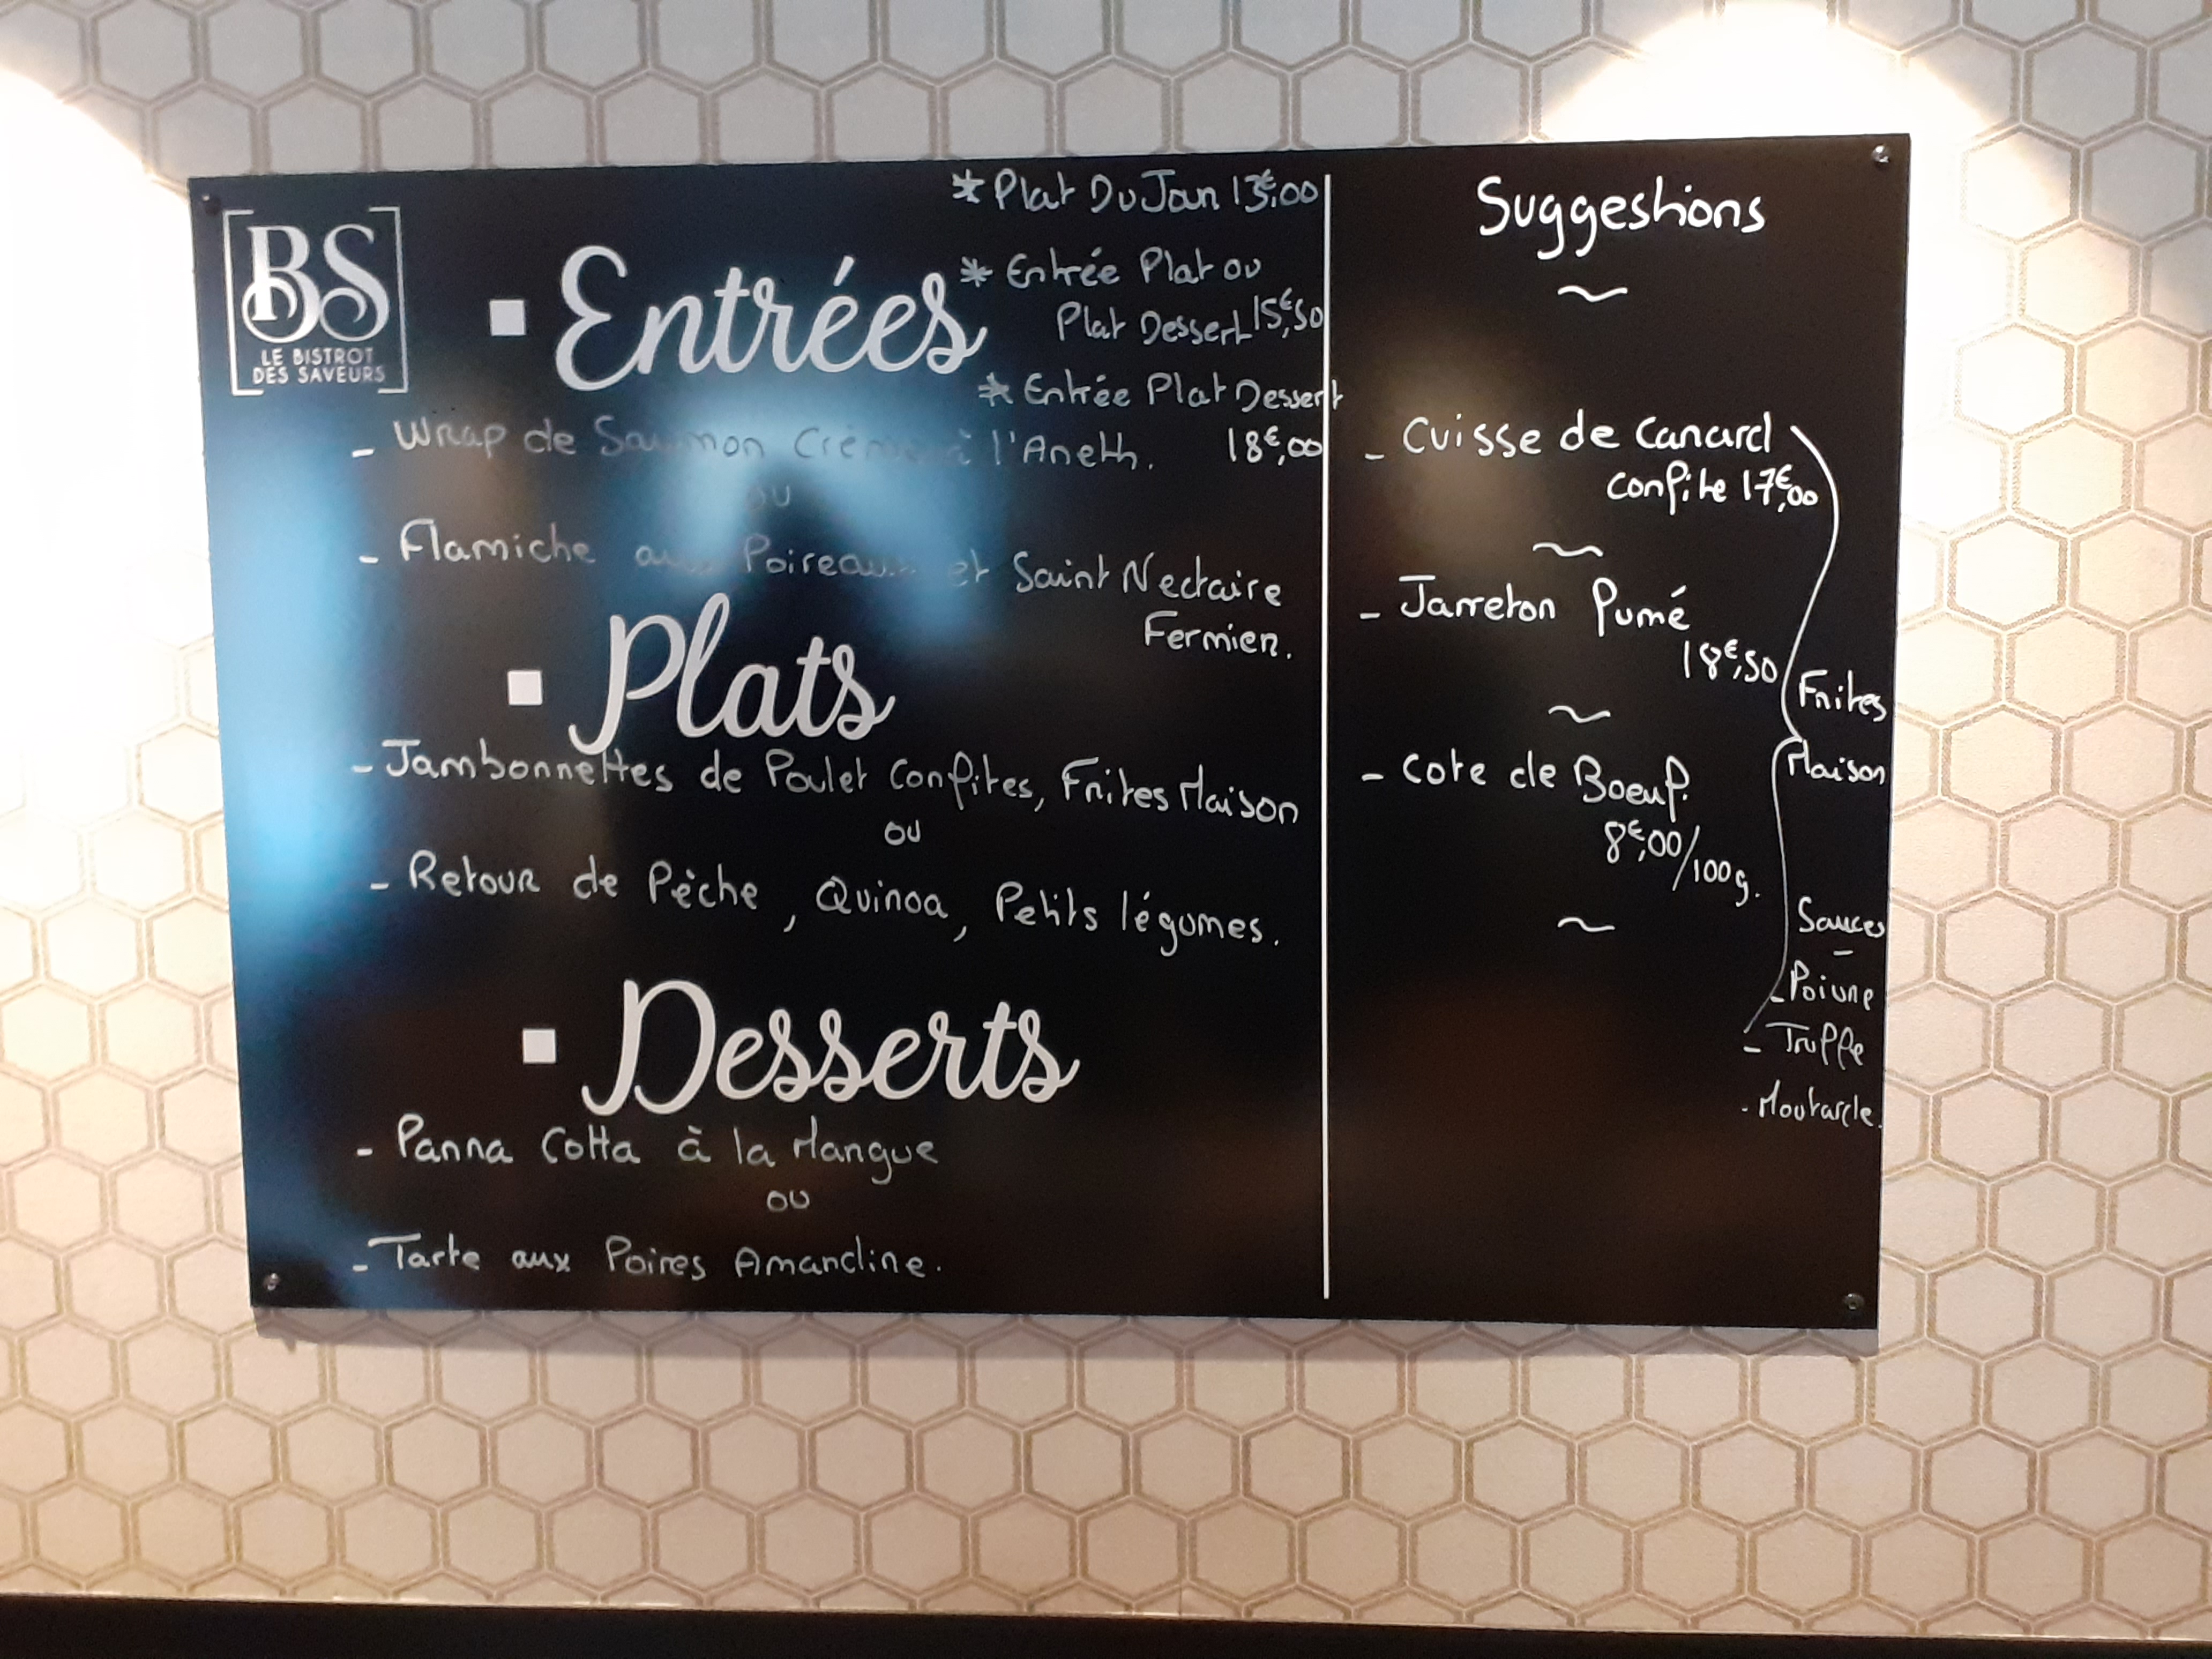 BS
LE BISTROT
DES SAVEURS
* Plat Du Jour 13€,00
* Entrée Plat ou
Plat Dessert 15€,50
* Entrée Plat Dessert
18€,00
Entrées
- Wrap de Saumon Crème à l'Aneth.
ou
- Flamiche aux Poireaux et Saint Nectaire
Fermier.
Plats
- Jambonnettes de Poulet Confites, Frites Maison
ou
- Retour de Pèche, Quinoa, Petits légumes.
Desserts
- Panna Cotta à la Mangue
ou
- Tarte aux Poires Amandine.
Suggestions
- Cuisse de Canard
confite 17€,00
- Jarreton Fumé
18€,50
- Cote de Boeuf.
8€,00/100g.
Frites
Maison
Sauces
- Poivre
- Truffe
- Moutarde.